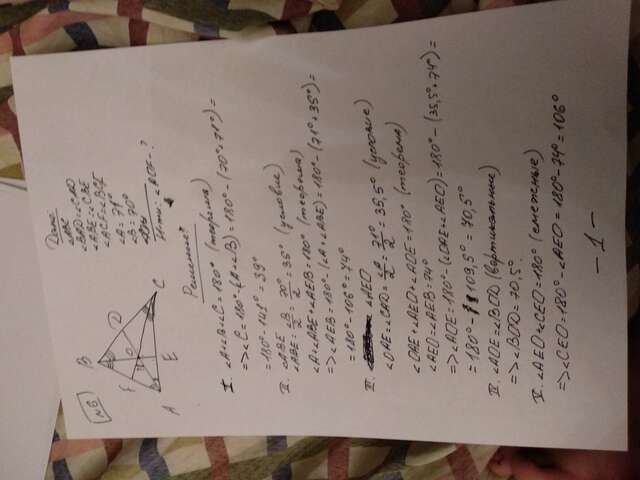 №6
Дано:
∠ABC
∠BAD=∠CAD
∠ABE=∠CBE
∠ACF=∠BCF
∠A=71°
∠B=70°
Н-ти: ∠AOF-?
B
F
O
D
A
E
C
Решение:
I. ∠A+∠B+∠C=180° (теорема)
=>∠C=180°-(A+∠B)=180°-(70°+71°)=
=180°-141°=39°
II. ∠ABE
∠ABE=∠B/2=70°/2=35° (условие)
∠A+∠ABE+∠AEB=180° (теорема)
=>∠AEB=180°-(∠A+∠ABE)=180°-(71°+35°)=
=180°-106°=74°
III. ∠AEO
∠OAE=∠CAD=∠A/2=71°/2=35,5° (условие)
∠OAE+∠AEO+∠AOE=180° (теорема)
∠AEO=∠AEB=74°
=>∠AOE=180°-(∠OAE+∠AEO)=180°-(35,5°+74°)=
=180°-109,5°=70,5°
IV. ∠AOE=∠BOD (вертикальные)
=>∠BOD=70,5°
V. ∠AEO+∠CEO=180° (смежные)
=>∠CEO=180°-∠AEO=180°-74°=106°
-1-